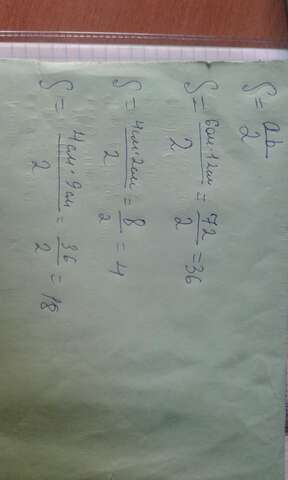 S = ab/2
S = 6см·12см/2 = 72/2 = 36
S = 4см·2см/2 = 8/2 = 4
S = 4см·9см/2 = 36/2 = 18